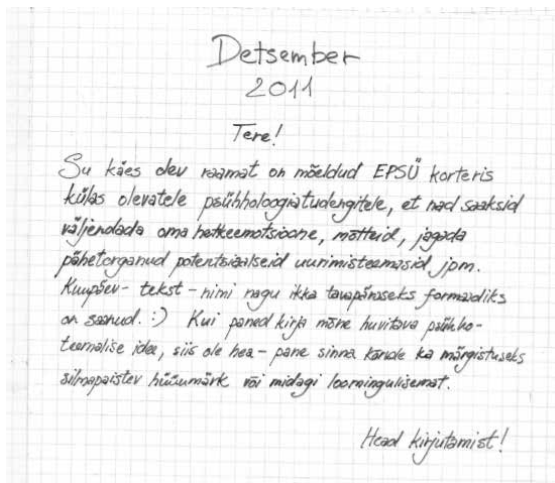 Detsember
2011
Tere!
Su käes olev raamat on mõeldud EPSÜ korteris
külas olevatele psühholoogiatudengitele, et nad saaksid
väljendada oma hetkeemotsioone, mõtteid, jagada
pähetorganud potentsiaalseid uurimisteemasid jpm.
Kuupäev - tekst - nimi nagu ikka tavapäraseks formaadiks
on saanud. :) Kui paned kirja mõne huvitava psühho-
teemalise idee, siis ole hea - pane sinna kõrvale ka märgistuseks
silmapaistev hüüumärk või midagi loomingulisemat.
Head kirjutamist!